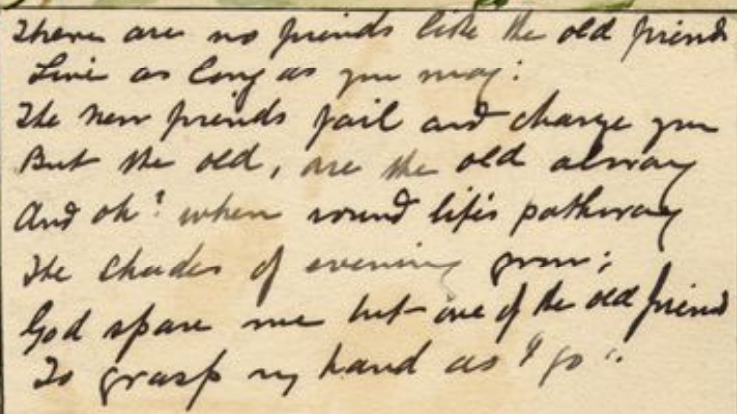 There are no friends like the old friends
Live as long as you may:
The new friends fail and change you
But the old, are the old alway
And oh! when round life's pathway
The shades of evening grow;
God spare me but one of the old friends
To grasp my hand as "I go".